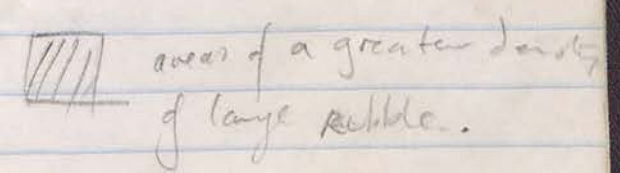 areas of a greater density
of large rubble.